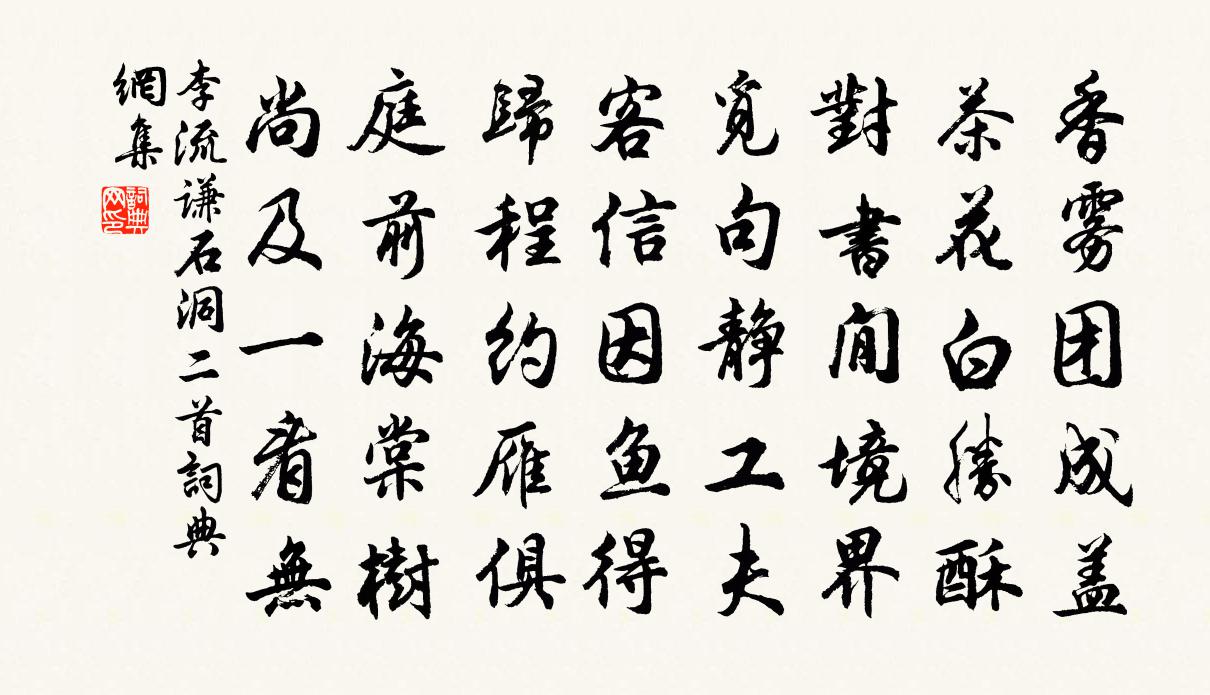 香雾团成盖
茶花白勝酥
對書閒境界
觅句静工夫
客信因鱼得
歸程約雁俱
庭前海棠樹
尚及一看無
李流谦石洞二首詞典
網集
詞典网印